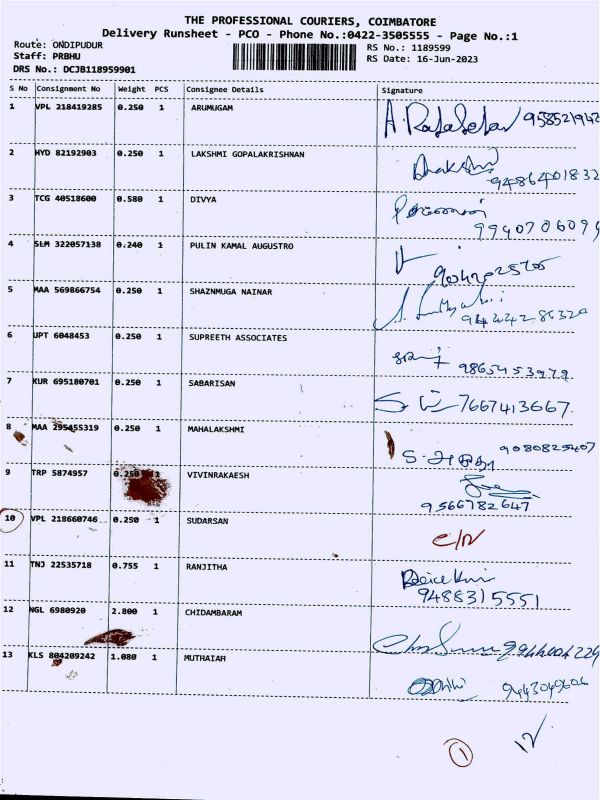 THE PROFESSIONAL COURIERS, COIMBATORE
Delivery Runsheet - PCO - Phone No.:0422-3505555 - Page No.:1
Route: ONDIPUDUR RS No.: 1189599
Staff: PRBHU RS Date: 16-Jun-2023
DRS No.: DCJB118959901
S No Consignment No Weight PCS Consignee Details Signature
1 VPL 218419285 0.250 1 ARUMUGAM
2 HYD 82192903 0.250 1 LAKSHMI GOPALAKRISHNAN
9486401832
3 TCG 40518600 0.580 1 DIVYA
4 SLM 322057138 0.240 1 PULIN KAMAL AUGUSTRO
5 MAA 569866754 0.250 1 SHAZNMUGA NAINAR
6 UPT 6048453 0.250 1 SUPREETH ASSOCIATES
9865453979
7 KUR 695180701 0.250 1 SABARISAN
7667413667
8 MAA 295455319 0.250 1 MAHALAKSHMI
9080825407
9 TRP 5874957 0.250 1 VIVINRAKAESH
9566782647
10 VPL 218660746 0.250 1 SUDARSAN
11 TNJ 22535718 0.755 1 RANJITHA
9488315551
12 NGL 6980920 2.800 1 CHIDAMBARAM
13 KLS 804209242 1.080 1 MUTHAIAH
9443049606
1
12